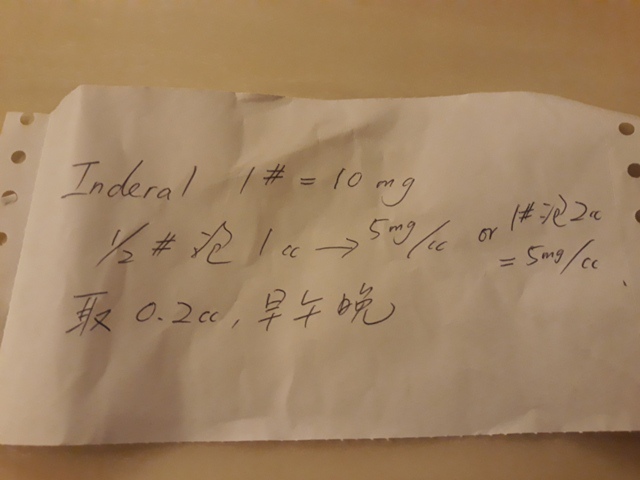 Inderal 1# = 10 mg
1/2 # 泡 1cc → 5mg/cc or 1#泡2cc
= 5mg/cc
取 0.2cc, 早午晚